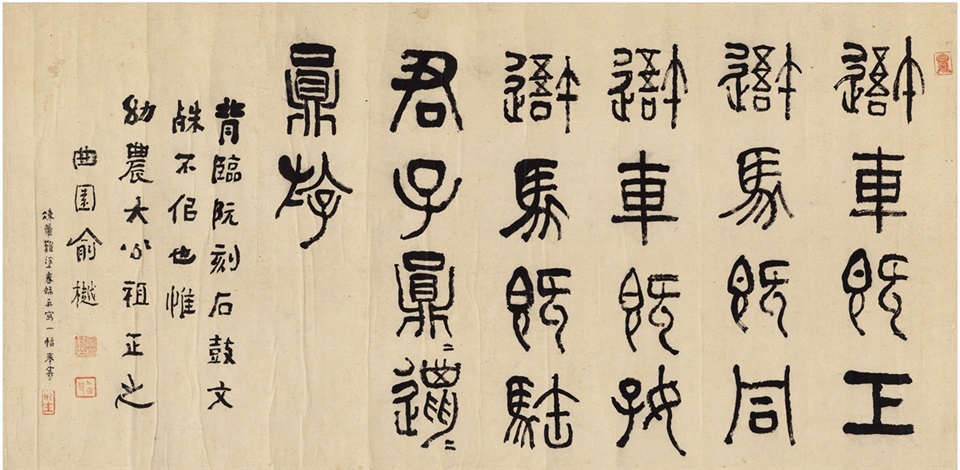 吾車既工
吾馬既同
吾車既好
吾馬既駓
君子員=邋=
員斿
背臨阮刻石鼓文
殊不佀也惟
幼農大公祖正之
曲園俞樾